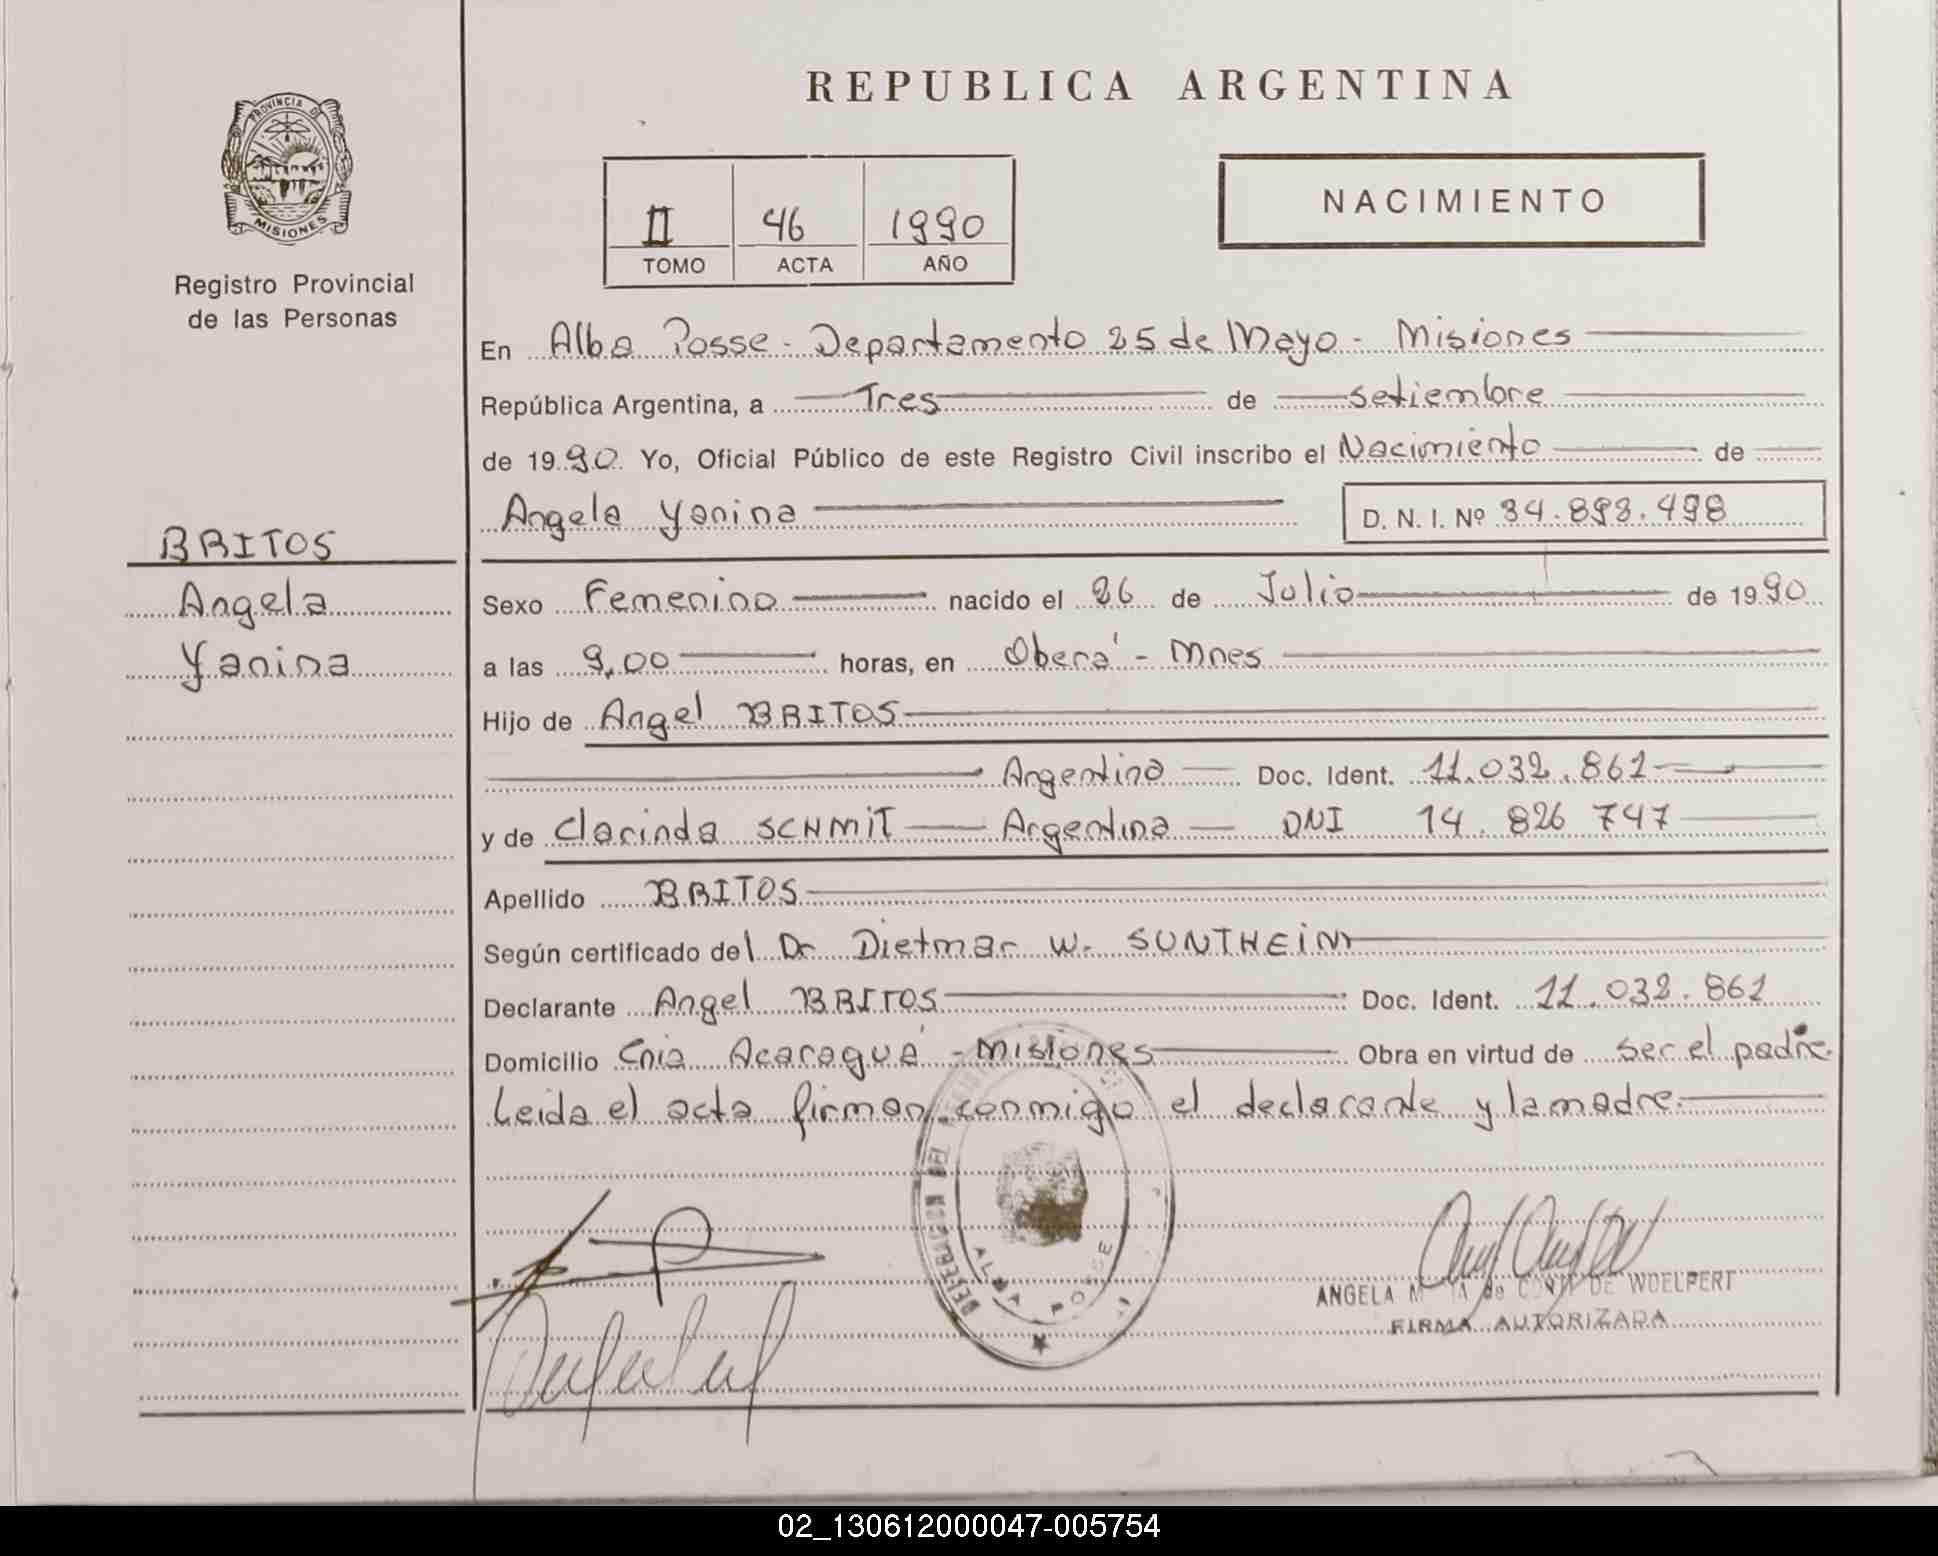 REPUBLICA ARGENTINA
PROVINCIA DE
MISIONES
Registro Provincial
de las Personas
II 46 1990
TOMO ACTA AÑO
NACIMIENTO
En Alba Posse - Departamento 25 de Mayo - Misiones
República Argentina, a Tres de setiembre
de 1990 Yo, Oficial Público de este Registro Civil inscribo el Nacimiento de
Angela Yanina D. N. I. Nº 34.893.498
BRITOS
Angela
Yanina
Sexo Femenino nacido el 26 de Julio de 1990
a las 9,00 horas, en Oberá - Mnes
Hijo de Angel BRITOS
Argentino Doc. Ident. 11.032.861
y de Clarinda SCHMIT Argentina DNI 14.826 747
Apellido BRITOS
Según certificado del Dr Dietmar W. SUNTHEIM
Declarante Angel BRITOS Doc. Ident. 11.032.861
Domicilio Cnia Acaraguá - Misiones Obra en virtud de ser el padre.
Leida el acta firman conmigo el declarante y la madre.
ALBA POSSE
ANGELA de DE WOELPERT
FIRMA AUTORIZADA
02_130612000047-005754